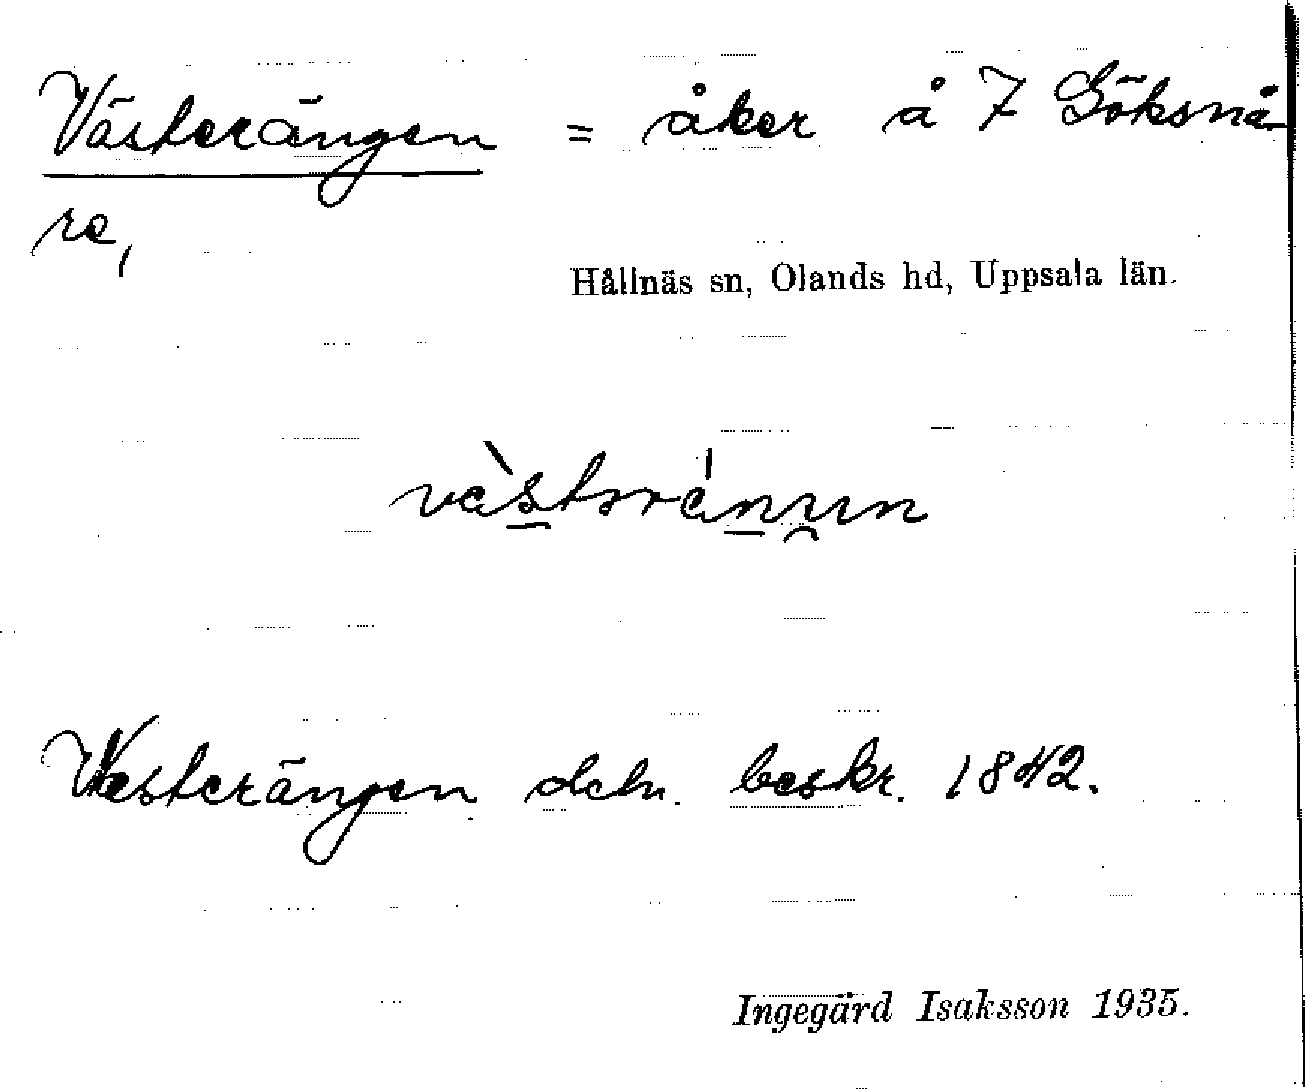 Västerängen = åker å 7 Göksnå
re,
Hållnäs sn, Olands hd, Uppsala län.
Westerängen beskr. 1842.
Ingegärd Isaksson 1935.